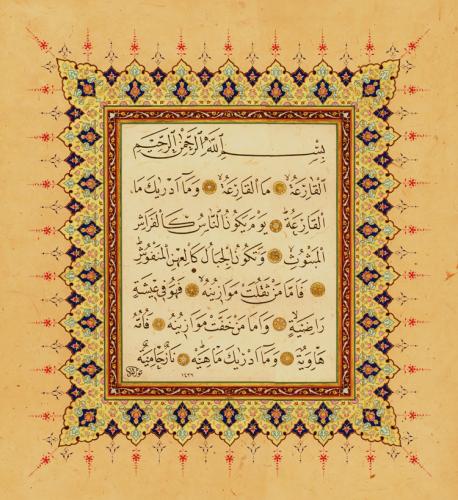 بِسْمِ اللهِ الرَّحْمٰنِ الرَّحِيمِ
اَلْقَارِعَةُ مَا الْقَارِعَةُ وَمَا اَدْرٰيكَ مَا
الْقَارِعَةُ يَوْمَ يَكُونُ النَّاسُ كَالْفَرَاشِ
الْمَبْثُوثِ وَتَكُونُ الْجِبَالُ كَالْعِهْنِ الْمَنْفُوشِ
فَاَمَّا مَنْ ثَقُلَتْ مَوَازِينُهُ فَهُوَ فِى عِيشَةٍ
رَاضِيَةٍ وَاَمَّا مَنْ خَفَّتْ مَوَازِينُهُ فَاُمُّهُ
هَاوِيَةٌ وَمَا اَدْرٰيكَ مَاهِيَهْ نَارٌ حَامِيَةٌ
١٤٢٦